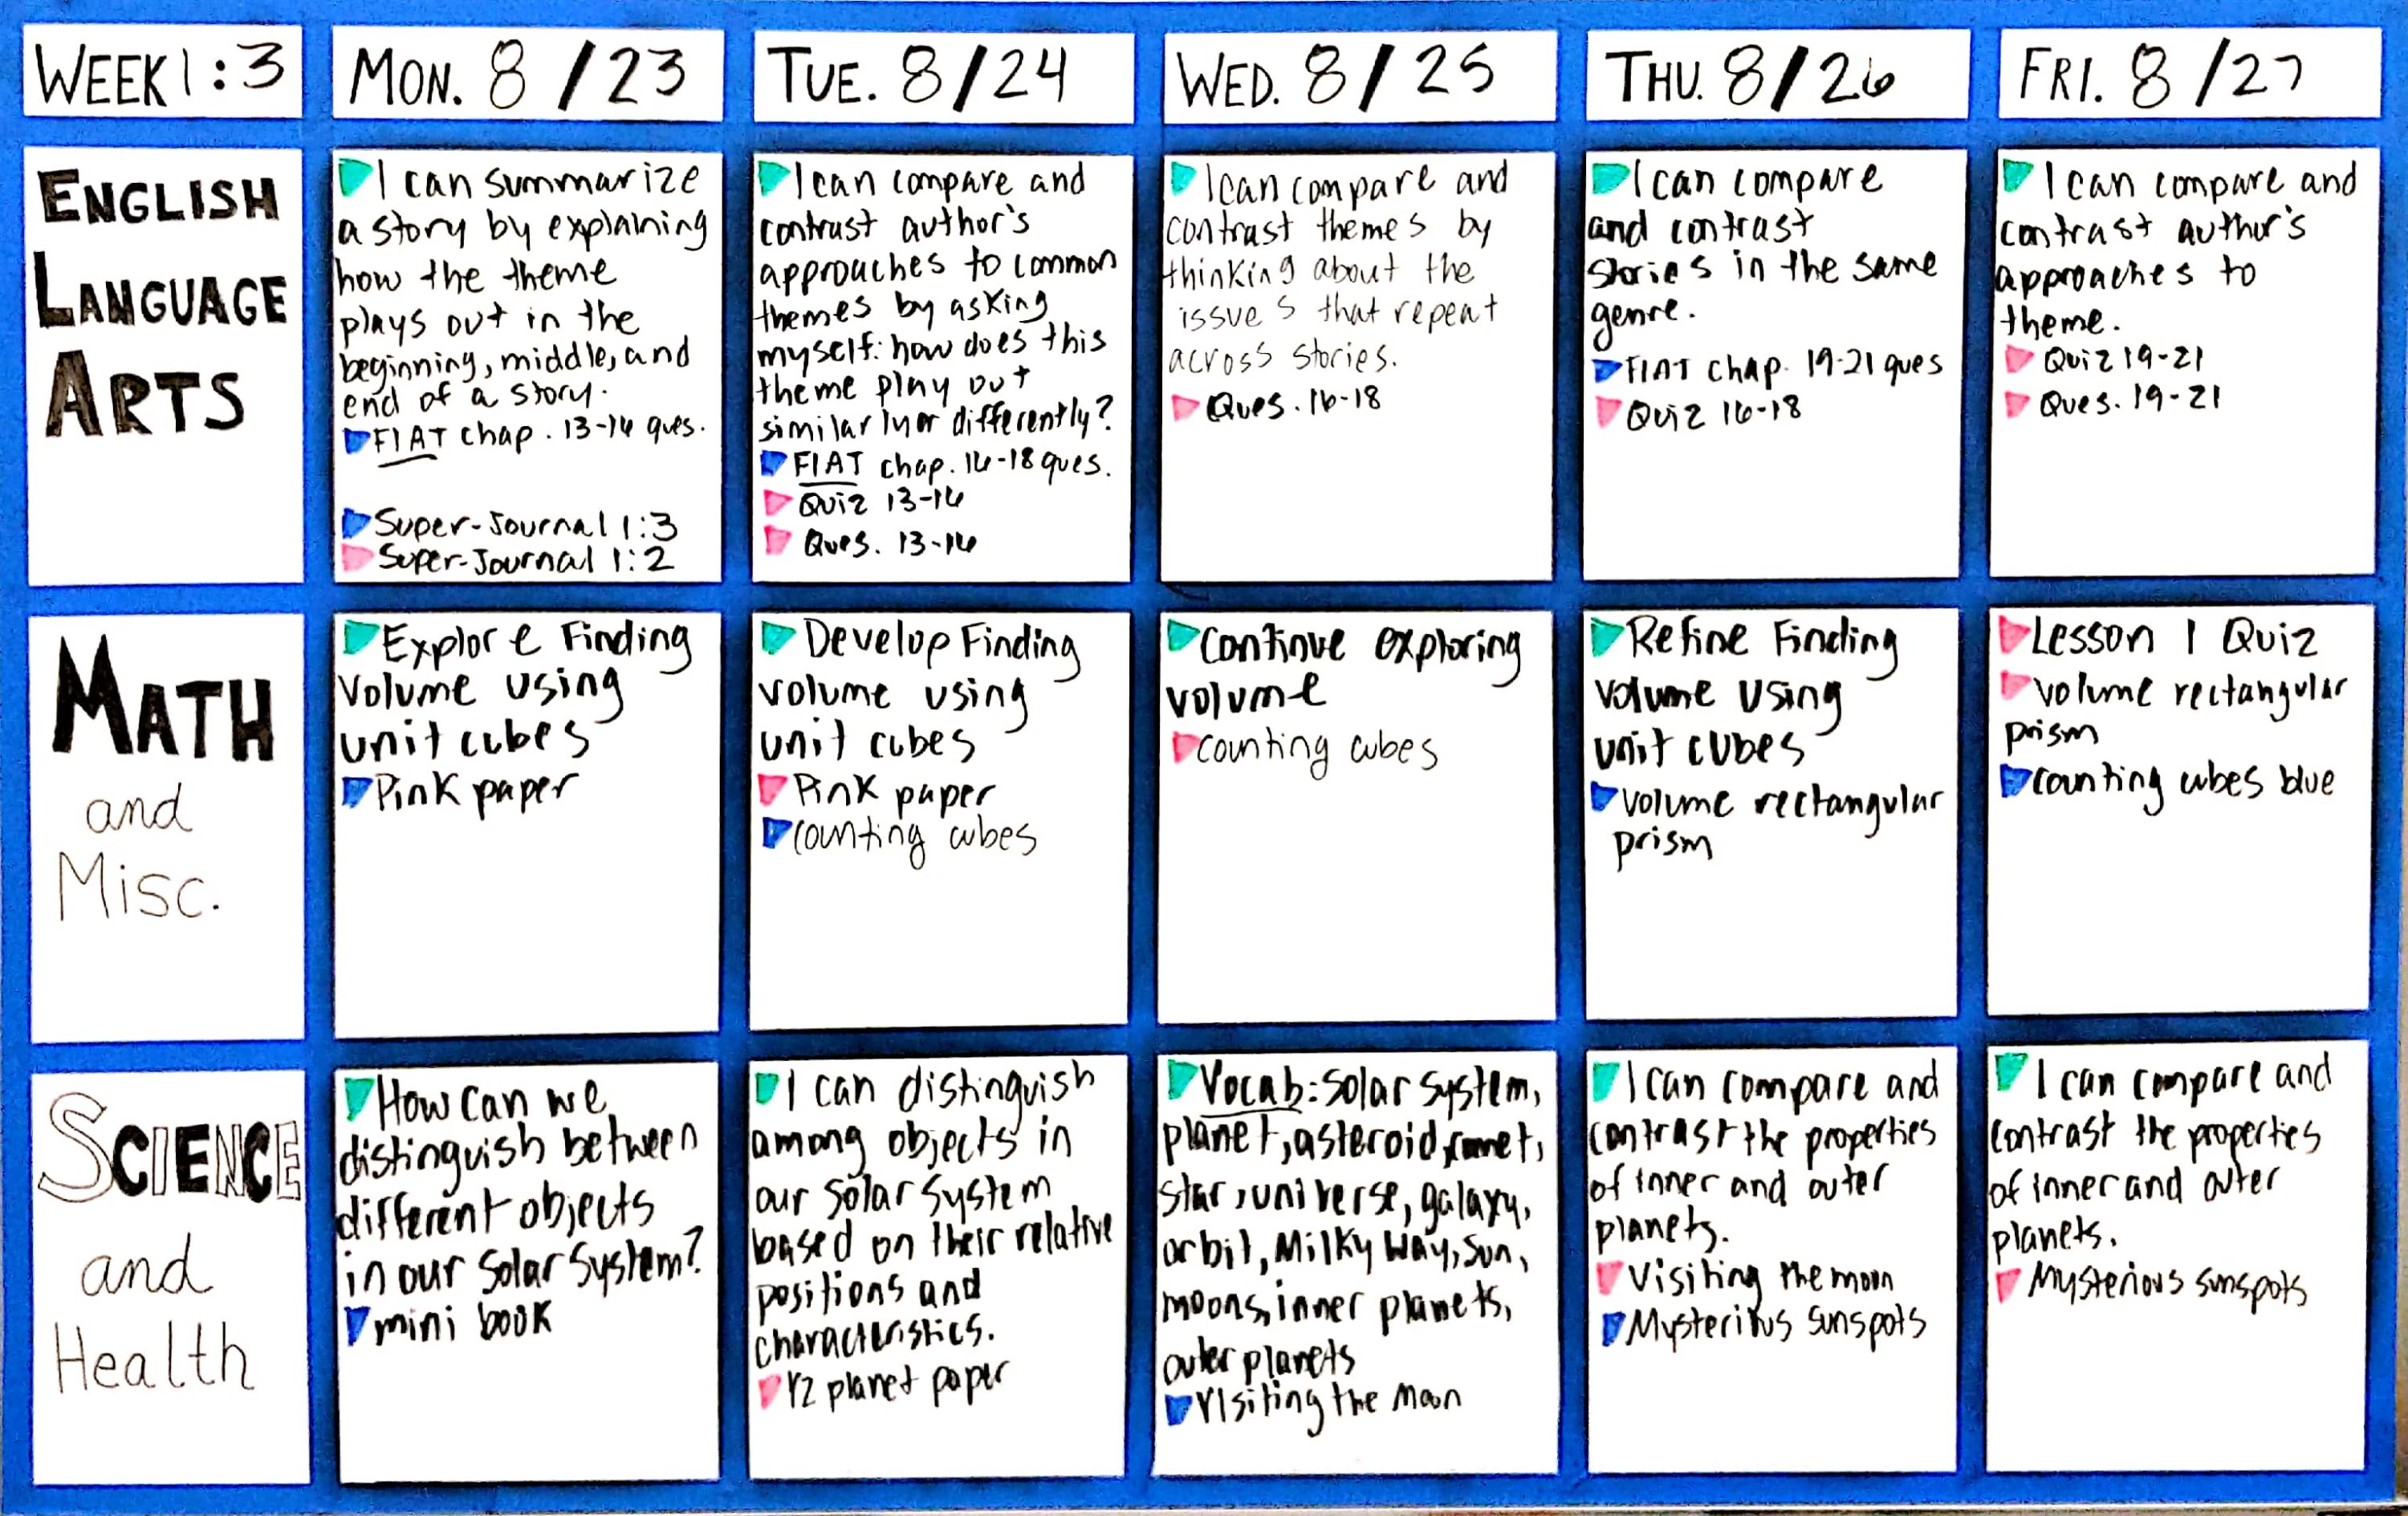 WEEK 1:3
MON. 8/23
TUE. 8/24
WED. 8/25
THU. 8/26
FRI. 8/27
ENGLISH
LANGUAGE
ARTS
I can summarize
a story by explaining
how the theme
plays out in the
beginning, middle, and
end of a story.
FIAT chap. 13-14 ques.
Super-Journal 1:3
Super-Journal 1:2
I can compare and
contrast author's
approaches to common
themes by asking
myself: how does this
theme play out
similarly or differently?
FIAT chap. 16-18 ques.
Quiz 13-14
Ques. 13-14
I can compare and
contrast themes by
thinking about the
issues that repeat
across stories.
Ques. 16-18
I can compare
and contrast
stories in the same
genre.
FIAT chap. 19-21 ques
Quiz 16-18
I can compare and
contrast author's
approaches to
theme.
Quiz 19-21
Ques. 19-21
MATH
and
Misc.
Explore Finding
Volume using
unit cubes
Pink paper
Develop Finding
volume using
unit cubes
Pink paper
counting cubes
Continue exploring
volume
counting cubes
Refine Finding
volume using
unit cubes
volume rectangular
prism
Lesson 1 Quiz
volume rectangular
prism
counting cubes blue
SCIENCE
and
Health
How can we
distinguish between
different objects
in our solar system?
mini book
I can distinguish
among objects in
our solar system
based on their relative
positions and
characteristics.
planet paper
Vocab: solar system,
planet, asteroid, comet,
star, universe, galaxy,
orbit, Milky Way, sun,
moons, inner planets,
outer planets
Visiting the Moon
I can compare and
contrast the properties
of inner and outer
planets.
Visiting the moon
Mysterious sunspots
I can compare and
contrast the properties
of inner and outer
planets.
Mysterious sunspots